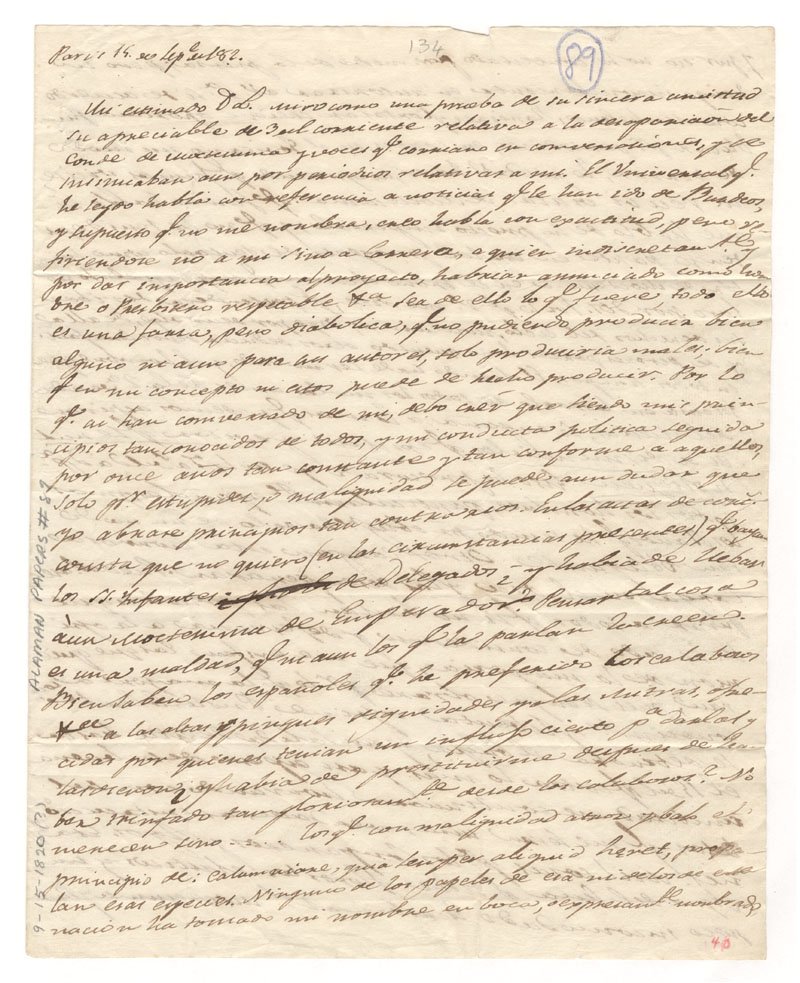 134
89
Paris 15. de Sep.e de 182.
Mi estimado D L. miro como una prueba de su sincera amistad
su apreciable de 3 del corriente relativa a la desaparicion del
Conde de Moctezuma y voces q.e corrian en conversaciones, y se
insinuaban aun por periodicos relativas a mi. El Universal q.e
he leydo habla con referencia a noticias q.e le han ido de Burdeos,
y supuesto q.e no me nombra, creo habla con exactitud, pero re
firiendose no a mi sino a Carrera, a quien indiscretam.te
por dar importancia al proyecto, habrian anunciado como hom
bre o Presbitero respetable &a sea de ello lo q.e fuere todo ello
es una farsa, pero diabolica, q.e no pudiendo producir bien
alguno ni aun para sus autores, solo produciria males, bien
q.e en mi concepto ni estos puede de hecho producir. Por lo
q.e si han conversado de mi, debo creer que siendo mis prin
cipios tan conocidos de todos, y mi conducta politica seguida
por once años tan constante y tan conforme a aquellos,
solo p.r estupidez, o malignidad se puede aun dudar que
yo abrase principios tan contrarios. En las actas de
consta que no quiero (en las circunstancias presentes) q.e vayan
los SS. Infantes de Delegados, y habia de llebar
aun Moctezuma de Emperador? Pensar tal cosa
es una maldad, q.e ni aun los q.e la parlan la creen.
Bien saben los españoles q.e he preferido los calabozos
&ce a las altas y pingues dignidades y a las Mitras, ofre
cidas por quienes tenian un influjo cierto p.a darlas y
las dieron, y habia de prostituirme despues de ha
ber triunfado tan gloriosam.te desde los calabosos? No
merecen sino .... los q.e con malignidad atroz y bajo el
principio de: calumniare, quia semper aliquid heret, prope
lan esas especies. Ninguno de los papeles de esa ni de los de esta
nacion ha tomado mi nombre en boca, o expresam.te nombrado,
ALAMAN PAPERS # 89
9-15-1820 (?)
40